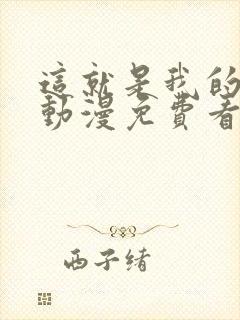 這就是我的
動漫免費看
西子緒